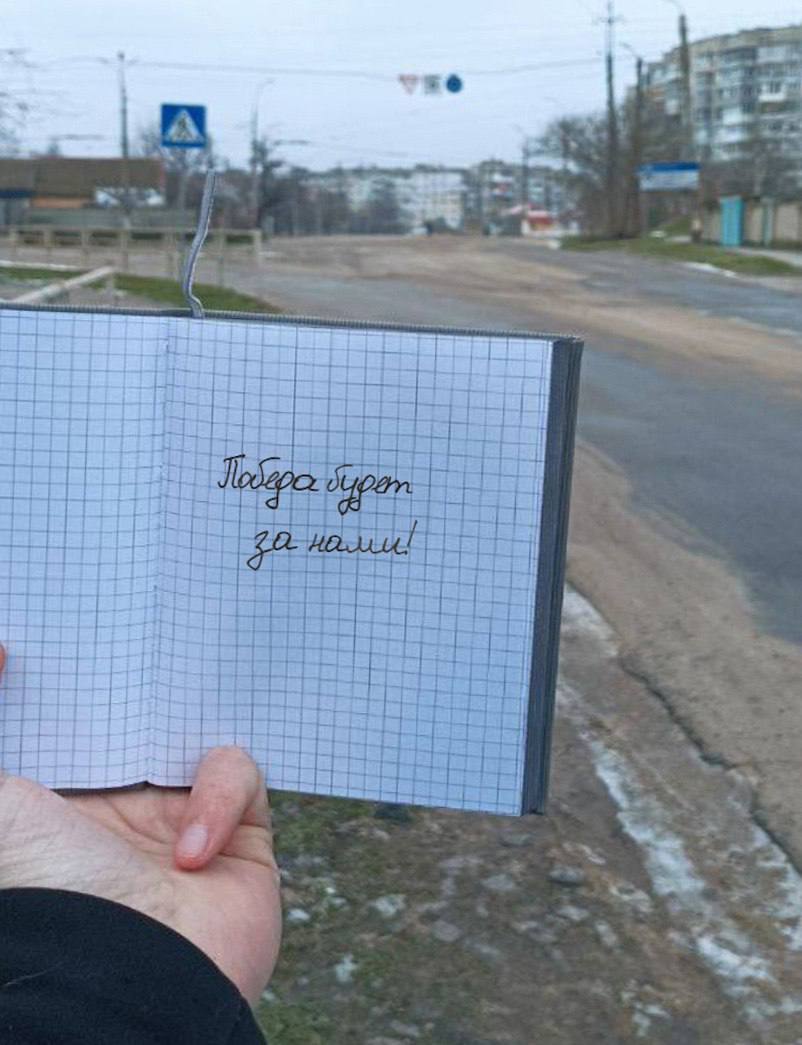 Победа будет
за нами!